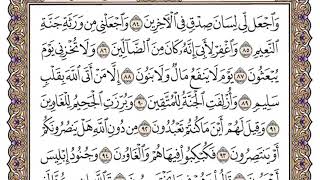 وَاجْعَل لِّي لِسَانَ صِدْقٍ فِي الْآخِرِينَ ٨٤ وَاجْعَلْنِي مِن وَرَثَةِ جَنَّةِ
النَّعِيمِ ٨٥ وَاغْفِرْ لِأَبِي إِنَّهُ كَانَ مِنَ الضَّالِّينَ ٨٦ وَلَا تُخْزِنِي يَوْمَ
يُبْعَثُونَ ٨٧ يَوْمَ لَا يَنفَعُ مَالٌ وَلَا بَنُونَ ٨٨ إِلَّا مَنْ أَتَى اللَّهَ بِقَلْبٍ
سَلِيمٍ ٨٩ وَأُزْلِفَتِ الْجَنَّةُ لِلْمُتَّقِينَ ٩٠ وَبُرِّزَتِ الْجَحِيمُ لِلْغَاوِينَ
٩١ وَقِيلَ لَهُمْ أَيْنَ مَا كُنتُمْ تَعْبُدُونَ ٩٢ مِن دُونِ اللَّهِ هَلْ يَنصُرُونَكُمْ
أَوْ يَنتَصِرُونَ ٩٣ فَكُبْكِبُوا فِيهَا هُمْ وَالْغَاوُونَ ٩٤ وَجُنُودُ إِبْلِيسَ